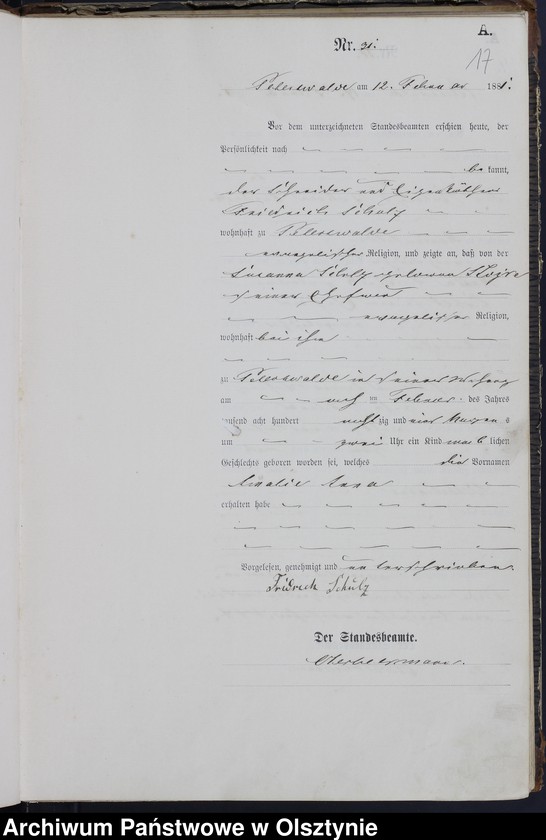 A.
17
Nr. 31.
Peterswalde am 12. Februar 1881.
Vor dem unterzeichneten Standesbeamten erschien heute, der
Persönlichkeit nach
bekannt,
der Schneider und Eigenkäthner
Friedrich Schulz
wohnhaft zu Peterswalde
evangelischer Religion, und zeigte an, daß von der
Susanna Schulz geborenen
seiner Ehefrau
evangelischer Religion,
wohnhaft bei ihm
zu Peterswalde in seiner Wohnung
am im Februar des Jahres
tausend acht hundert achtzig und eins Morgens
um zwei Uhr ein Kind weiblichen
Geschlechts geboren worden sei, welches die Vornamen
Amalie Anna
erhalten habe
Vorgelesen, genehmigt und unterschrieben.
Fridrich Schulz
Der Standesbeamte.
Archiwum Państwowe w Olsztynie